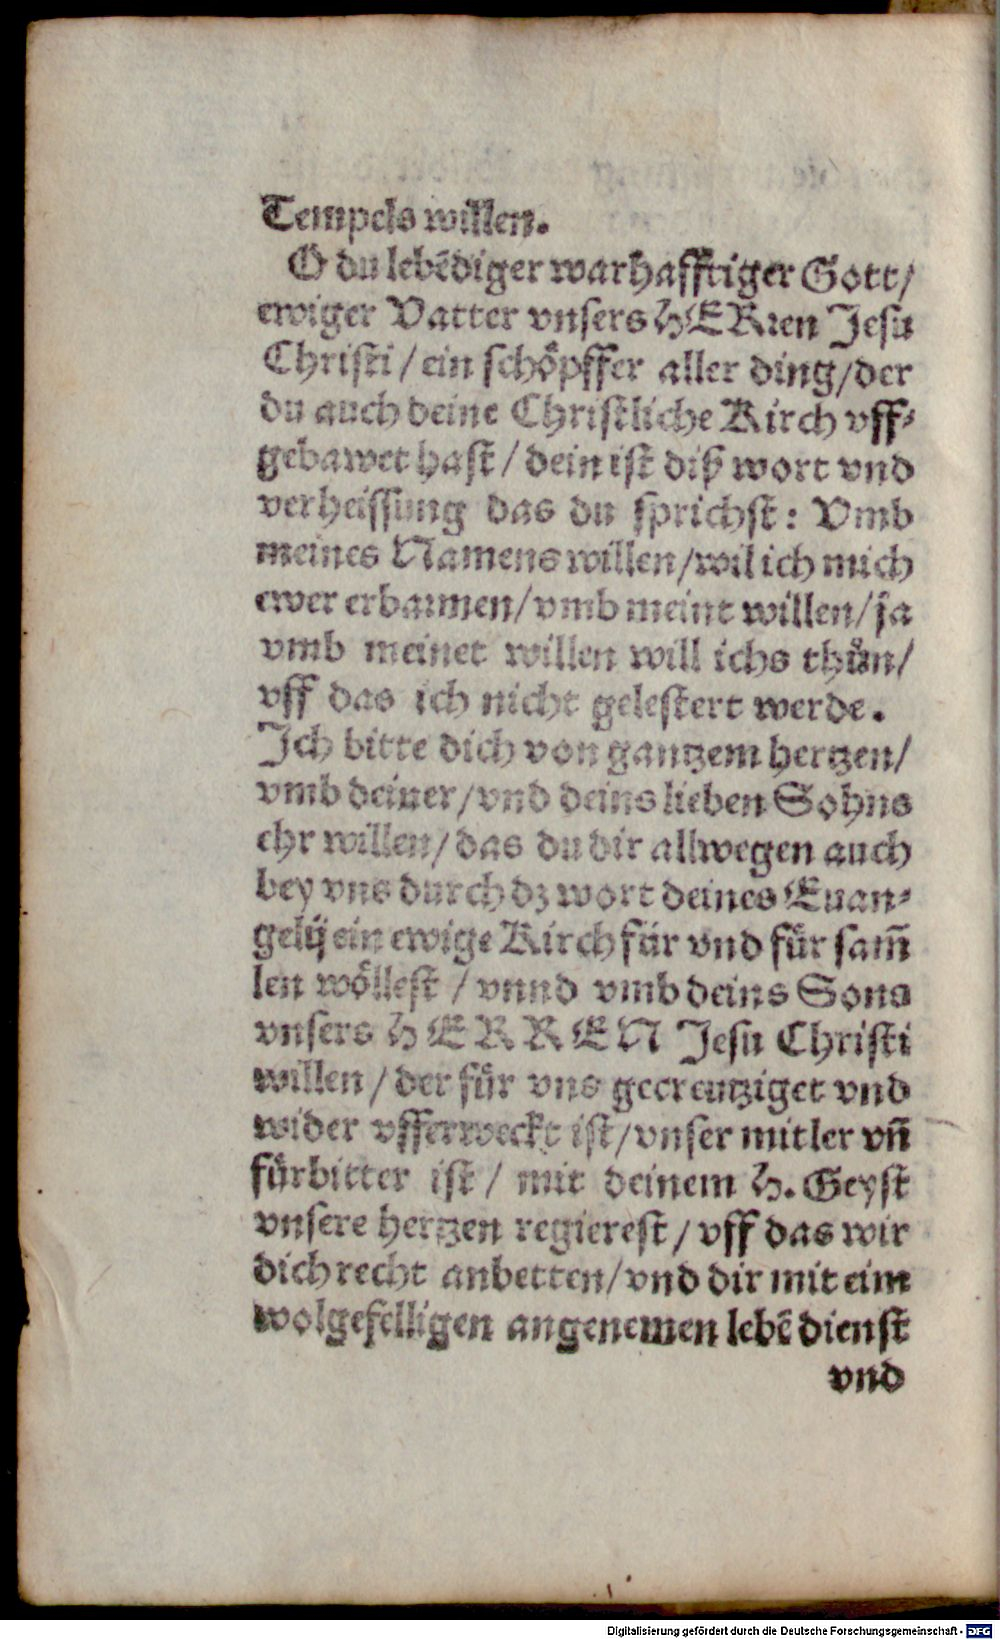 Tempels willen.
O du lebẽdiger warhafftiger Gott/
ewiger Vatter vnsers HERꝛen Jesu
Christi / ein schoͤpffer aller ding/der
du auch deine Christliche Kirch vff⸗
gebawet hast / dein ist diß wort vnd
verheissung das du sprichst: Vmb
meines Namens willen/wil ich mich
ewer erbarmen/vmb meint willen/ja
vmb meinet willen will ichs thůn/
vff das ich nicht gelestert werde.
Ich bitte dich von gantzem hertzen/
vmb deiner/vnd deins lieben Sohns
ehr willen/das du dir allwegen auch
bey vns durch dz wort deines Euan⸗
gelij ein ewige Kirch fuͤr vnd fuͤr sam̃
len woͤllest / vnnd vmb deins Sons
vnsers HERREN Jesu Christi
willen / der fuͤr vns gecreutziget vnd
wider vfferweckt ist/vnser mitler vñ
fuͤrbitter ist / mit deinem H. Geyst
vnsere hertzen regierest / vff das wir
dich recht anbetten/vnd dir mit eim
wolgefelligen angenemen lebẽ dienst
vnd
Digitalisierung gefördert durch die Deutsche Forschungsgemeinschaft - DFG